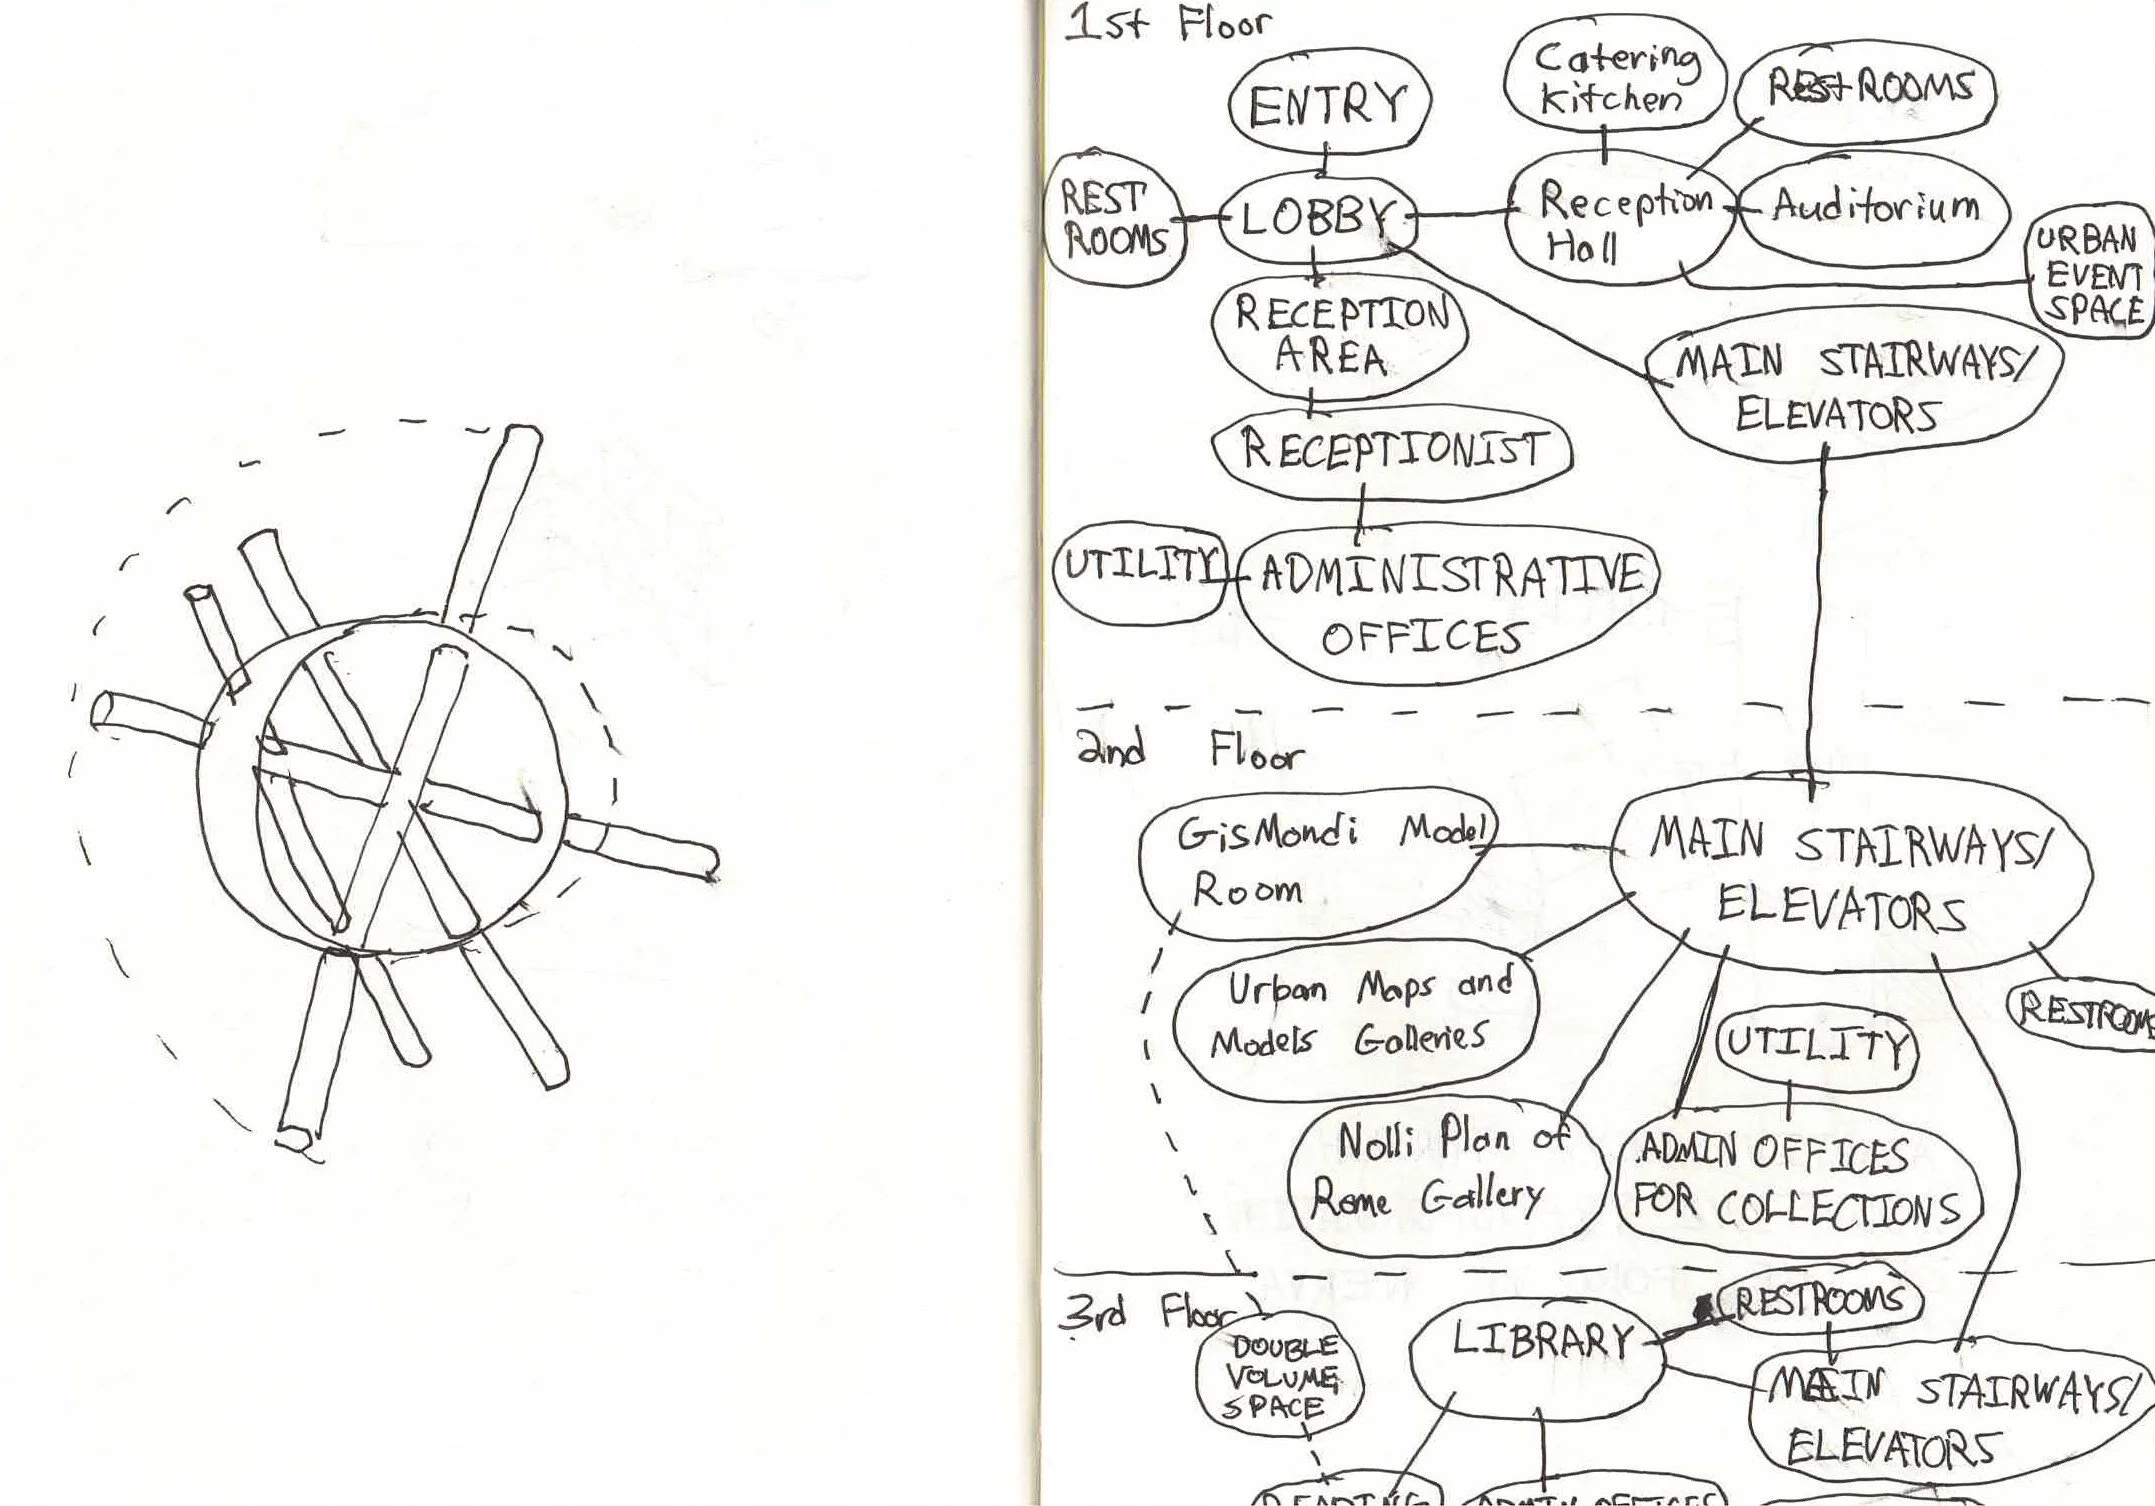 1st Floor
ENTRY
Catering
Kitchen
RESTROOMS
REST
ROOMS
LOBBY
Reception
Hall
Auditorium
URBAN
EVENT
SPACE
RECEPTION
AREA
MAIN STAIRWAYS/
ELEVATORS
RECEPTIONIST
UTILITY
ADMINISTRATIVE
OFFICES
2nd Floor
GisMondi Model
Room
MAIN STAIRWAYS/
ELEVATORS
Urban Maps and
Models Galleries
RESTROOMS
UTILITY
Nolli Plan of
Rome Gallery
ADMIN OFFICES
FOR COLLECTIONS
3rd Floor
DOUBLE
VOLUME
SPACE
LIBRARY
RESTROOMS
MAIN STAIRWAYS/
ELEVATORS
READING
ADMIN OFFICES